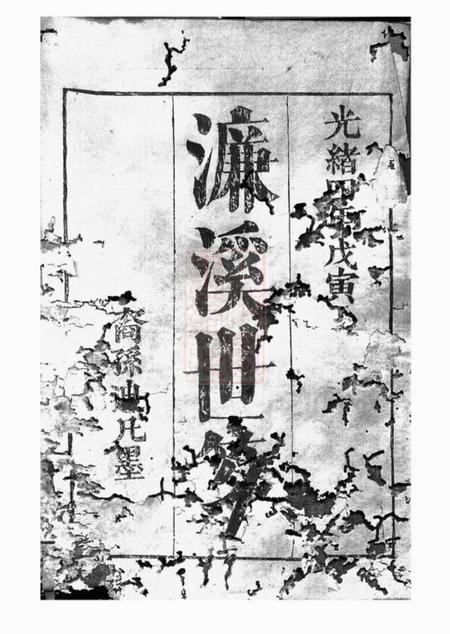 光緒四年戊寅
濂溪世
裔孫凡墨